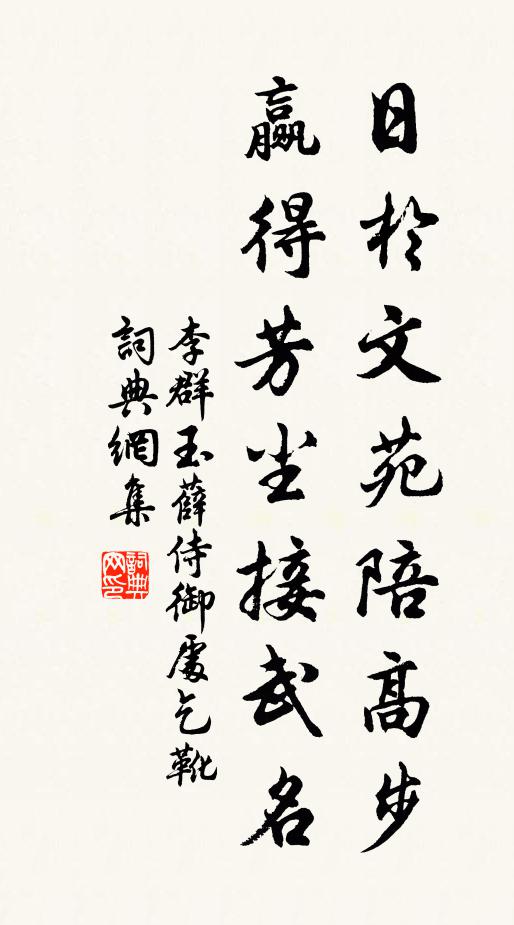 日於文苑陪高步
贏得芳尘接武名
李群玉薛侍御處乞靴
詞典網集
詞典网印